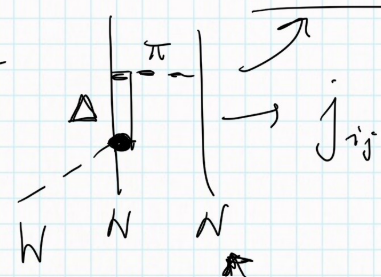 π
Δ
j_{ij}
W N N